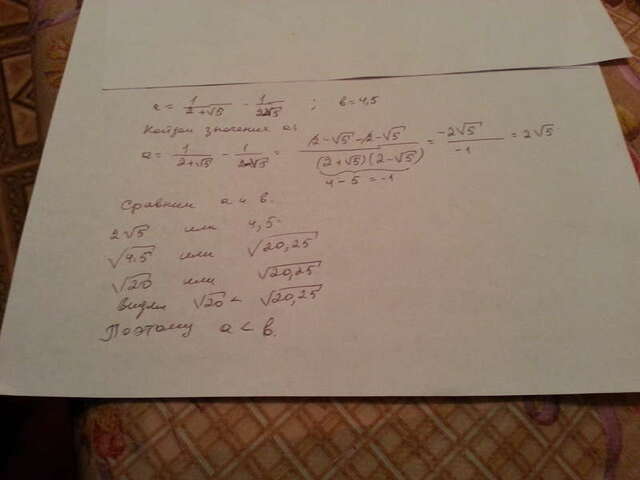 a = 1/(2+√5) − 1/(2−√5) ; в = 4,5
Найдем значения а:
a = 1/(2+√5) − 1/(2−√5) = (2−√5−2−√5)/((2+√5)(2−√5)) = −2√5/−1 = 2√5
4 − 5 = −1
Сравним а и в.
2√5 или 4,5.
√4·5 или √20,25
√20 или √20,25
Видим √20 < √20,25
Поэтому a < в.